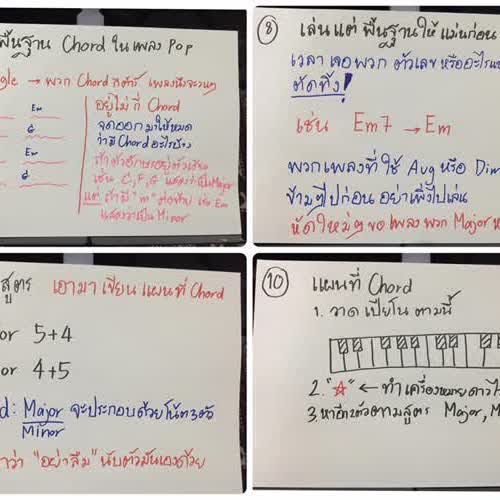 พื้นฐาน Chord ใน เพลง Pop
gle → พวก Chord กีต้าร์ เพลงนึงจะวนๆ
อยู่ไม่กี่ Chord
Em
จดออกมาให้หมด
G
ว่ามี Chord อะไรบ้าง
Em
ถ้าตัวอักษรอยู่ตัวเดียว
G
เช่น C, F, G แสดงว่าเป็น Major
แต่ ถ้ามี "m" ต่อท้าย เช่น Em
แสดงว่าเป็น Minor
8 เล่นแต่ พื้นฐานให้ แม่นก่อน
เวลา เจอพวก ตัวเลข หรืออะไร
ตัดทิ้ง!
เช่น Em7 → Em
พวกเพลงที่ ใช้ Aug หรือ Dim
ข้ามๆไปก่อน อย่าเพิ่งไปเล่น
หัดใหม่ๆ ขอ เพลงพวก Major
สูตร เอามา เขียน แผนที่ Chord
or 5+4
or 4+5
d: Major จะประกอบด้วยโน้ต 3 ตัว
Minor
ว่า "อย่าลืม" นับตัวมันเองด้วย
10 แผนที่ Chord
1. วาด เปียโน ตามนี้
2. "☆" ← ทำ เครื่องหมายดาวไ
3. หาอีก 2 ตัวตามสูตร Major, M